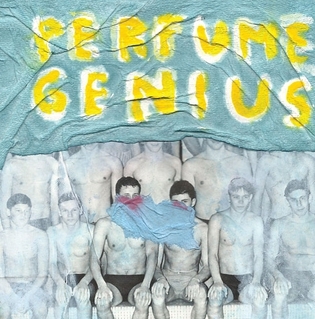 PERFUME
GENIUS